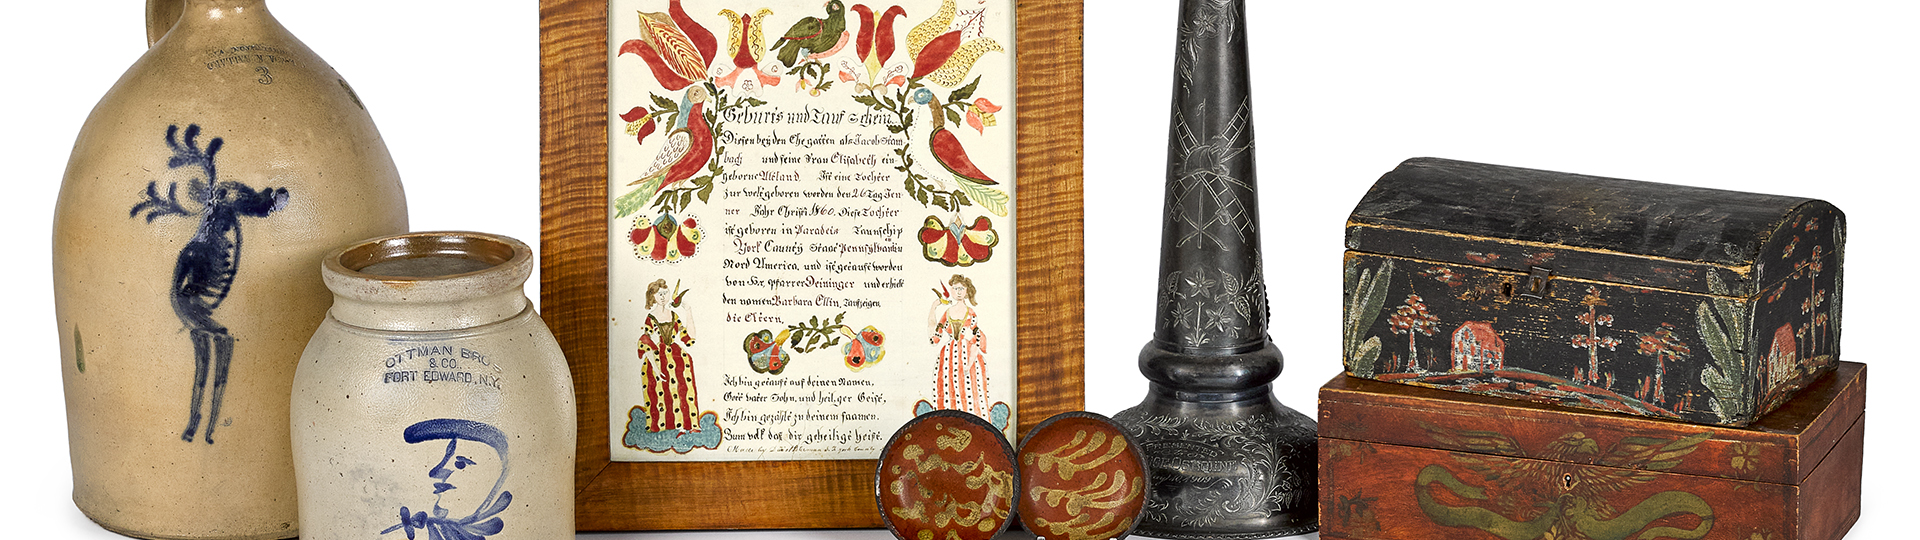 3
OTTMAN BROS
& CO.
FORT EDWARD, N.Y.
Geburts und Tauf Schein
Diesen beyden Ehe gatten als Jacob Stam
bach und seine Frau Elisabeth ein
geborne Altland Ist eine Tochter
zur welt geboren worden den 26 Tag Jen
ner Jahr Christi 1860. Diese Tochter
ist geboren in Paradeis Taunschip
York Caunty Staat Pennsylvanien
Nord America, und ist getauft worden
von Hr. pfarrer Deininger und erhielt
den namen Barbara Ellin, Taufzeigen,
die Eltern.
Ich bin getauft auf deinen Namen,
Gott vater Sohn, und heil,ger Geist,
Ich bin gezählt zu deinem saamen.
Zum volk das dir geheiligt heist.
Made by
1909